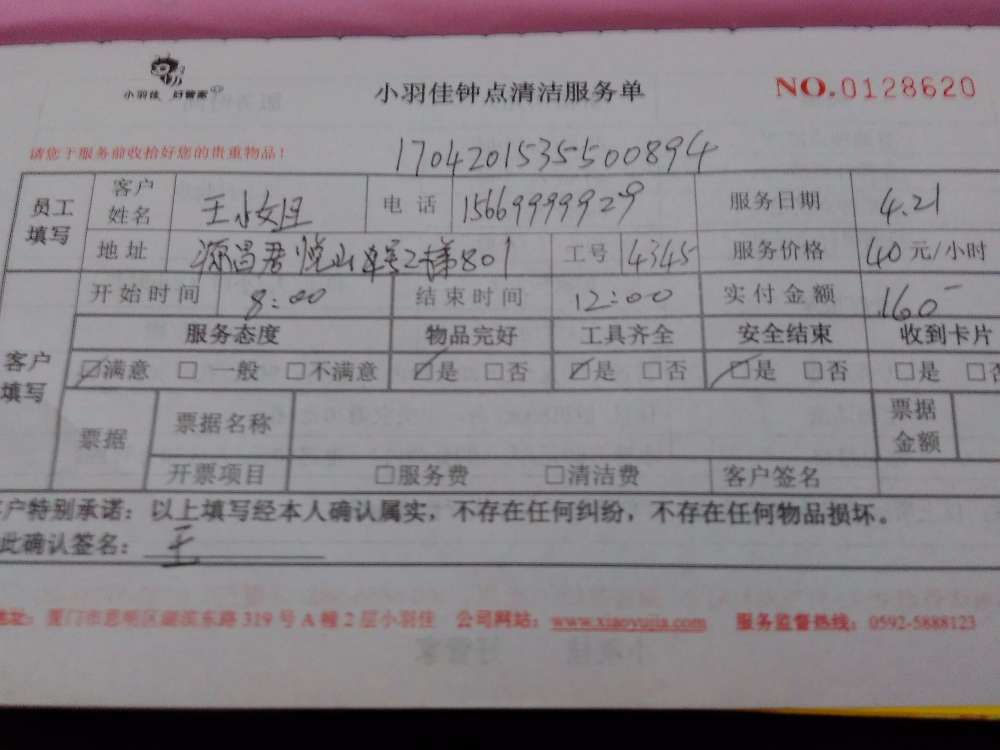 小羽佳 好管家
小羽佳钟点清洁服务单
NO.0128620
请您于服务前收拾好您的贵重物品!
1704201535500894
员工填写 客户姓名 王小姐 电话 15669999929 服务日期 4.21
地址 源昌君悦山 2梯801 工号 4345 服务价格 40元/小时
客户填写 开始时间 8:00 结束时间 12:00 实付金额 160
服务态度 物品完好 工具齐全 安全结束 收到卡片
☑满意 □一般 □不满意 ☑是 □否 ☑是 □否 ☑是 □否 □是 □否
票据 票据名称 票据金额
开票项目 □服务费 □清洁费 客户签名
客户特别承诺:以上填写经本人确认属实,不存在任何纠纷,不存在任何物品损坏。
此确认签名: 王
地址:厦门市思明区湖滨东路319号A幢2层小羽佳 公司网站:www.xiaoyujia.com 服务监督热线:0592-5888123